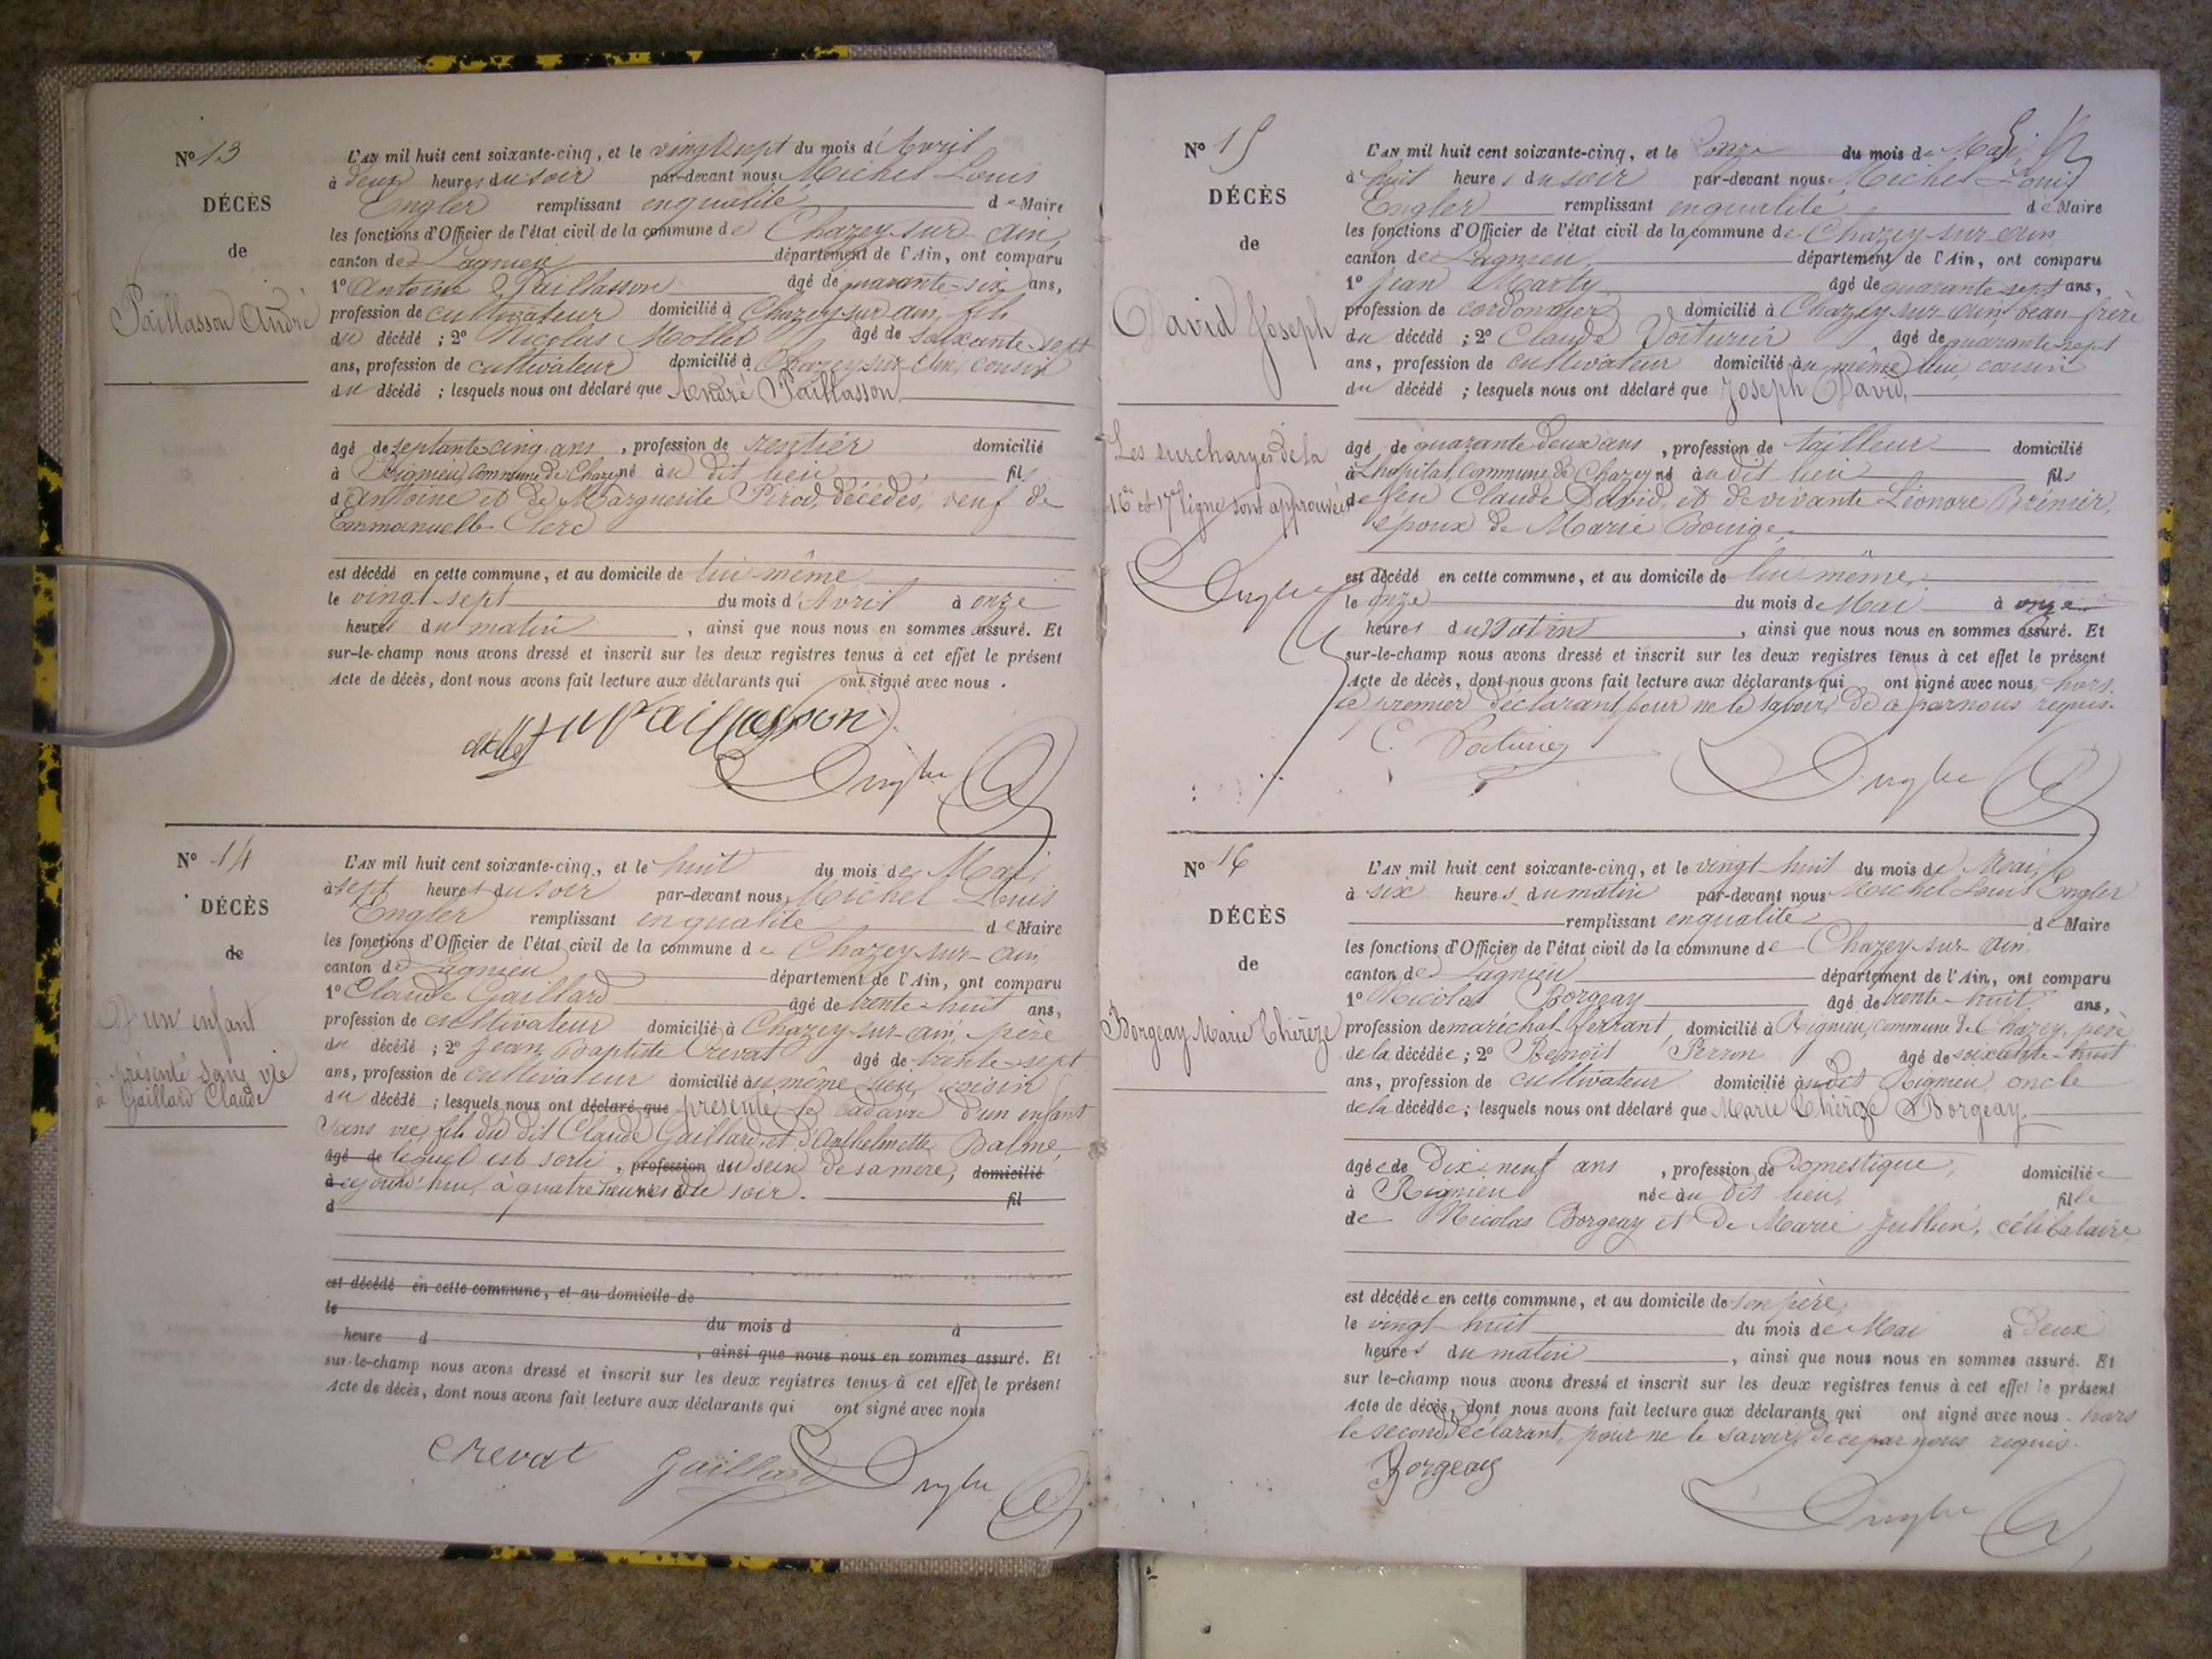 N° 13
DÉCÈS
de
Paillasson André
L'AN mil huit cent soixante-cinq, et le vingt sept du mois d'Avril
à deux heures du soir par-devant nous Michel Louis
Engler remplissant en qualité de Maire
les fonctions d'Officier de l'état civil de la commune de Chazey-sur-Ain,
canton de Lagnieu département de l'Ain, ont comparu
1° Antoine Paillasson âgé de quarante-six ans,
profession de cultivateur domicilié à Chazey-sur-Ain, fils
du décédé ; 2° Nicolas Mollet âgé de soixante-sept
ans, profession de cultivateur domicilié à Chazey-sur-Ain, cousin
du décédé ; lesquels nous ont déclaré que André Paillasson,
âgé de septante-cinq ans, profession de rentier domicilié
à Rignieu, Commune de Chazey né au dit lieu, fils
d'Antoine et de Marguerite Pirod, décédés, veuf de
Emmanuelle Clerc
est décédé en cette commune, et au domicile de lui-même,
le vingt-sept du mois d'Avril à onze
heures du matin, ainsi que nous nous en sommes assuré. Et
sur-le-champ nous avons dressé et inscrit sur les deux registres tenus à cet effet le présent
Acte de décès, dont nous avons fait lecture aux déclarants qui ont signé avec nous.
Mollet Paillasson
Engler
N° 14
DÉCÈS
de
D'un enfant
présenté sans vie
à Gaillard Claude
L'AN mil huit cent soixante-cinq, et le huit du mois de Mai,
à sept heures du soir par-devant nous Michel Louis
Engler remplissant en qualité de Maire
les fonctions d'Officier de l'état civil de la commune de Chazey-sur-Ain,
canton de Lagnieu département de l'Ain, ont comparu
1° Claude Gaillard âgé de trente-huit ans,
profession de cultivateur domicilié à Chazey-sur-Ain, père
du décédé ; 2° Jean Baptiste Crevat âgé de trente-sept
ans, profession de cultivateur domicilié au même lieu, voisin
du décédé ; lesquels nous ont déclaré que présenté le cadavre d'un enfant
sans vie, fils du dit Claude Gaillard, et d'Anthelmette Balme,
âgé de lequel est sorti, profession du sein de sa mère, domicilié
à cejourd'hui, à quatre heures du soir.
d fil
est décédé en cette commune, et au domicile de
le du mois d à
heure d , ainsi que nous nous en sommes assuré. Et
sur-le-champ nous avons dressé et inscrit sur les deux registres tenus à cet effet le présent
Acte de décès, dont nous avons fait lecture aux déclarants qui ont signé avec nous
Crevat Gaillard Engler
N° 15
DÉCÈS
de
David Joseph
Les surcharges de la
16e et 17e ligne sont approuvées
Engler
L'AN mil huit cent soixante-cinq, et le onze du mois de Mai,
à huit heures du soir par-devant nous Michel Louis
Engler remplissant en qualité de Maire
les fonctions d'Officier de l'état civil de la commune de Chazey-sur-Ain
canton de Lagnieu, département de l'Ain, ont comparu
1° Jean Marty âgé de quarante sept ans,
profession de cordonnier domicilié à Chazey-sur-Ain, beau-frère
du décédé ; 2° Claude Voiturier âgé de quarante-sept
ans, profession de cultivateur domicilié au même lieu, cousin
du décédé ; lesquels nous ont déclaré que Joseph David,
âgé de quarante deux ans, profession de tailleur domicilié
à Lhopital, Commune de Chazey né au dit lieu fils
de feu Claude David, et de vivante Léonore Brénier,
époux de Marie Bouige,
est décédé en cette commune, et au domicile de lui-même,
le onze du mois de Mai à onze
heures du Matin, ainsi que nous nous en sommes assuré. Et
sur-le-champ nous avons dressé et inscrit sur les deux registres tenus à cet effet le présent
Acte de décès, dont nous avons fait lecture aux déclarants qui ont signé avec nous, hors
le premier déclarant, pour ne le savoir, de ce par nous requis.
C. Voiturier Engler
N° 16
DÉCÈS
de
Borgeay Marie Thérèze
L'AN mil huit cent soixante-cinq, et le vingt huit du mois de Mai,
à six heures du matin par-devant nous Michel Louis Engler
remplissant en qualité de Maire
les fonctions d'Officier de l'état civil de la commune de Chazey-sur-Ain
canton de Lagnieu département de l'Ain, ont comparu
1° Nicolas Borgeay âgé de trente-huit ans,
profession de maréchal-ferrant, domicilié à Rignieu, commune de Chazey, père
de la décédée ; 2° Benoit Perron âgé de soixante-huit
ans, profession de cultivateur domicilié au dit Rignieu, oncle
de la décédée ; lesquels nous ont déclaré que Marie Thérèze Borgeay,
âgée de Dix-neuf ans, profession de Domestique, domiciliée
à Rignieu née au dit lieu, fille
de Nicolas Borgeay et de Marie Jullien, célibataire
est décédée en cette commune, et au domicile de son père,
le vingt-huit du mois de Mai à deux
heures du matin, ainsi que nous nous en sommes assuré. Et
sur le-champ nous avons dressé et inscrit sur les deux registres tenus à cet effet le présent
Acte de décès, dont nous avons fait lecture aux déclarants qui ont signé avec nous hors
le second déclarant, pour ne le savoir, de ce par nous requis.
Borgeay
Engler